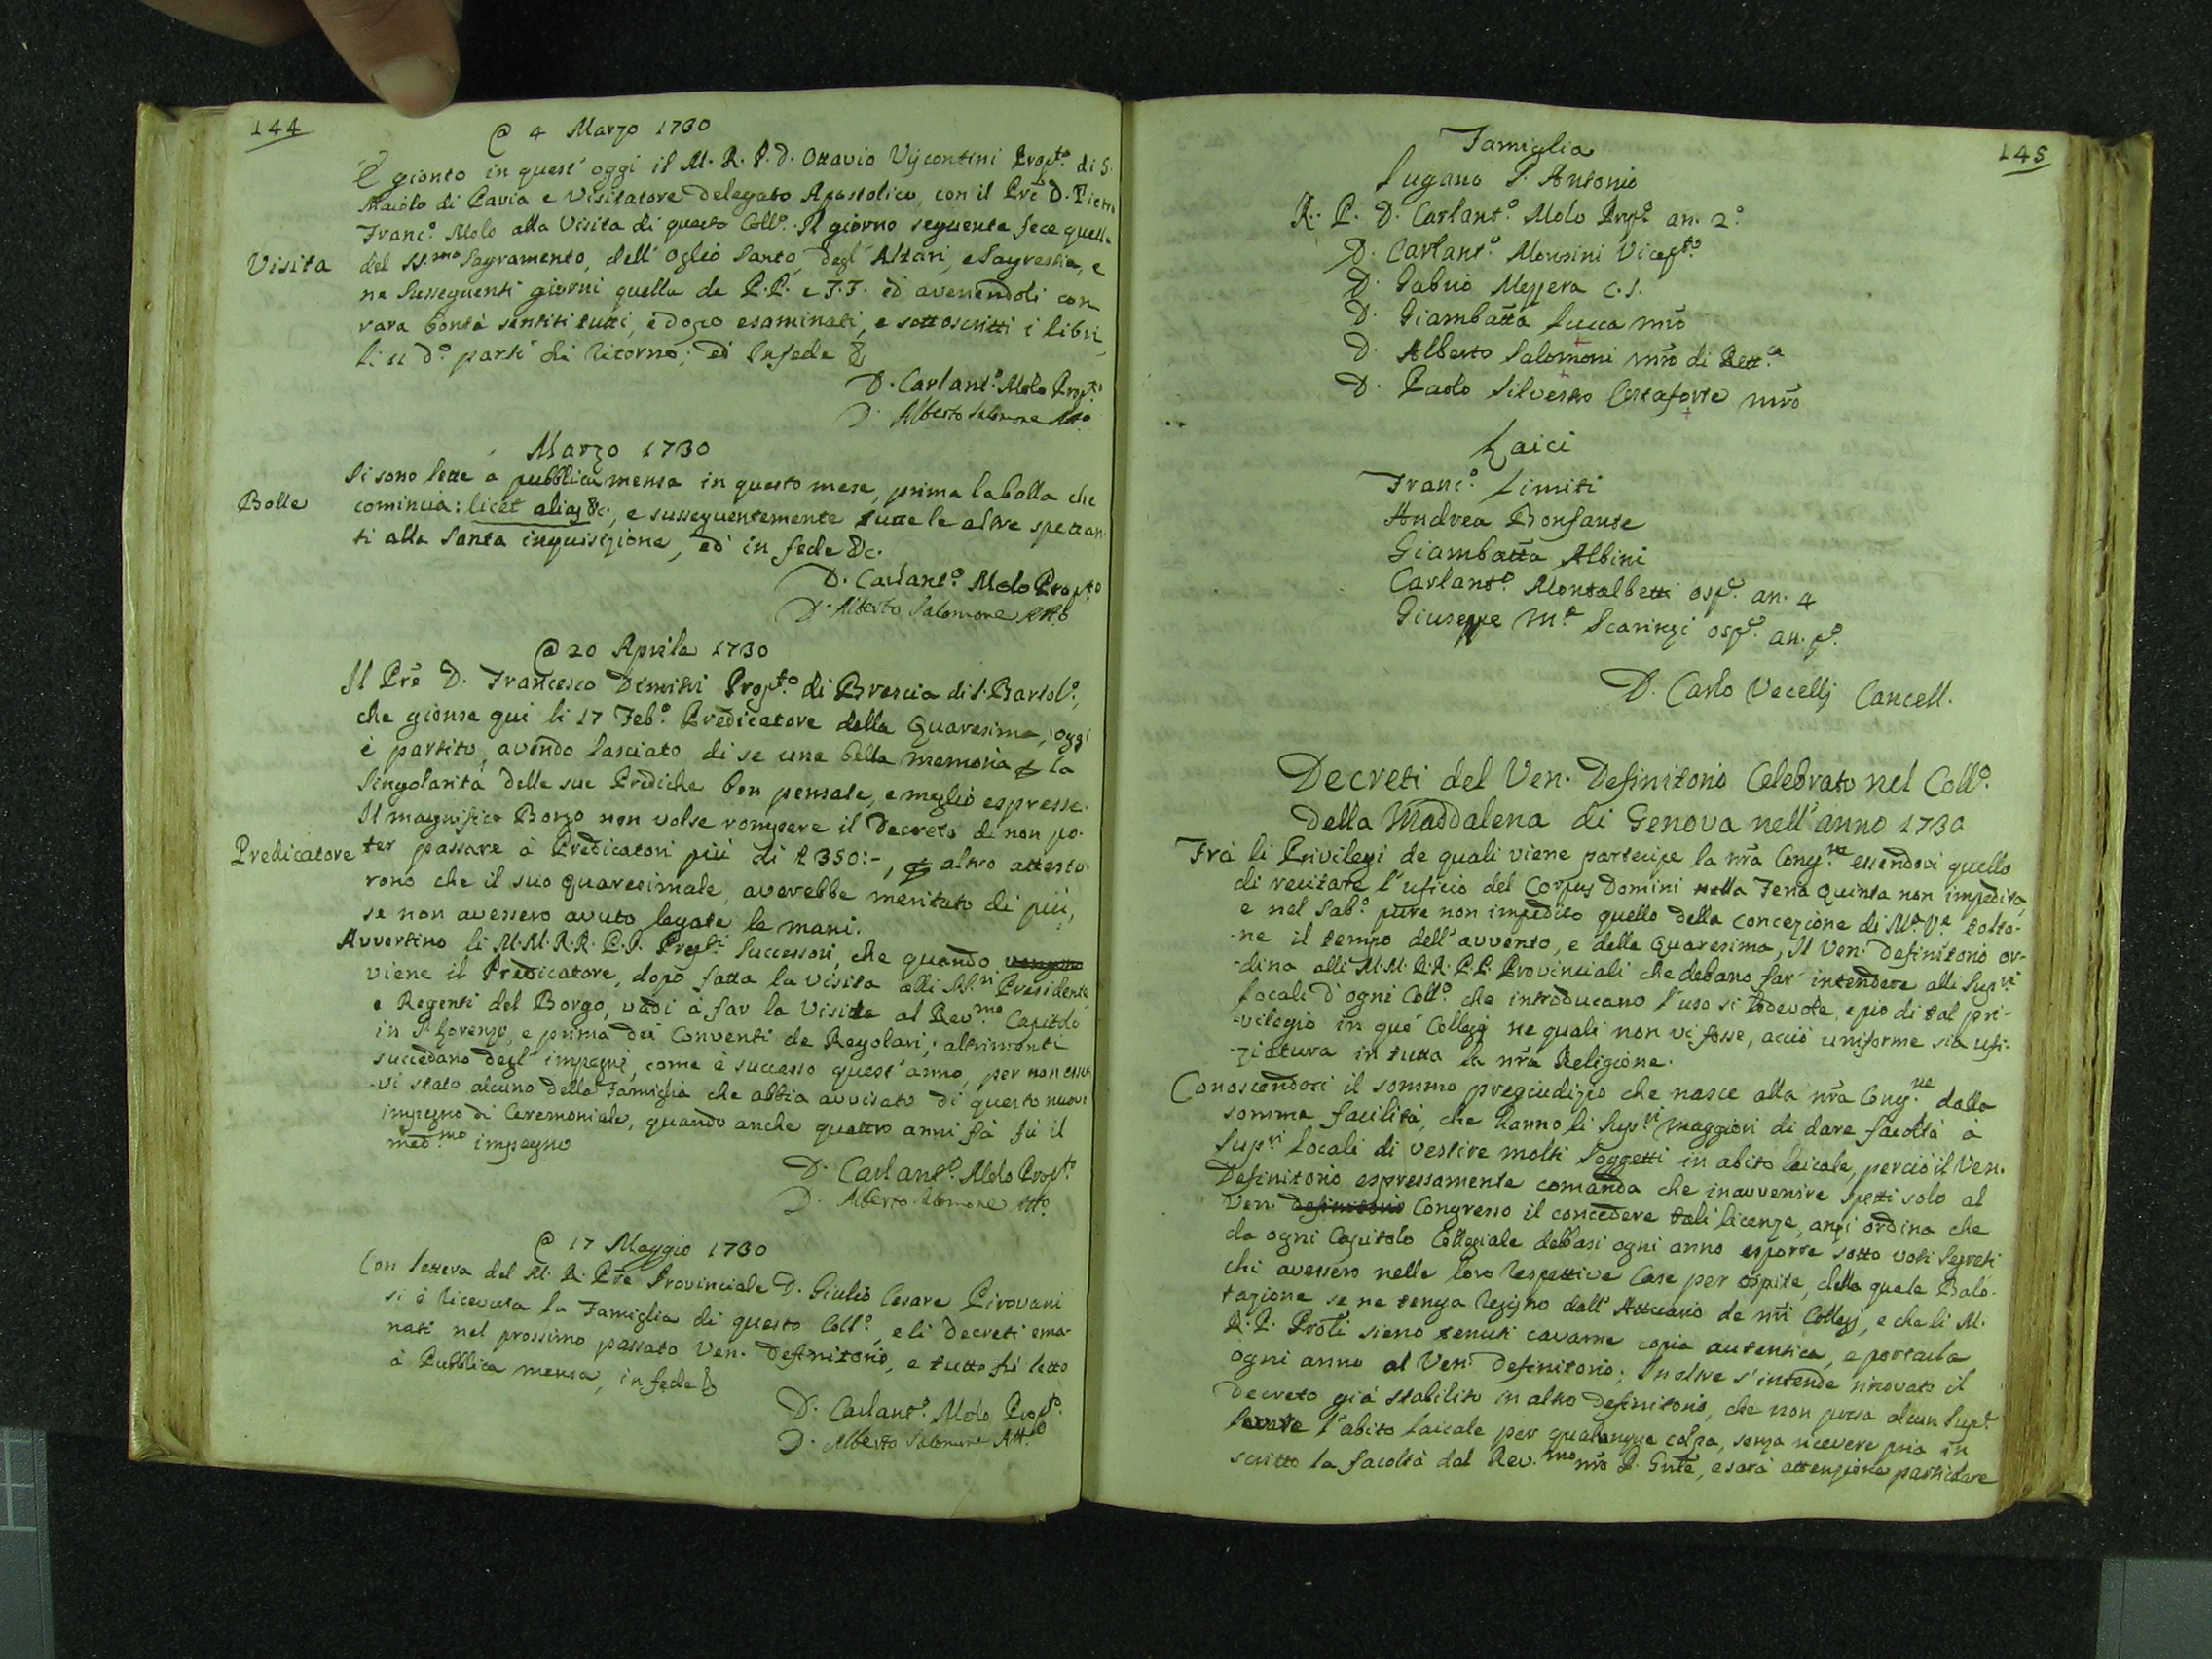 144
@ 4 Marzo 1730
È gionto in quest' oggi il M. R. P. D. Ottavio Vijcontini Propto. di S.
Maiolo di Pavia e Visitatore Delegato Apostolico, con il Pre D. Pietro
Franc.o Molo alla Visita di questo Coll.o Il giorno seguente fece quella
Visita
del SS.mo Sagramento, dell' Oglio Santo, degl' Altari, e Sagrestia, e
ne susseguenti giorni quella de P.P. e F.F. ed avenendoli con
rara bontà sentiti tutti, e dopo esaminati, e sottoscritti i libri,
li 11 d.o partì di ritorno; ed in fede &
D. Carlant.o Molo Prop.to
D. Alberto Salomone Att.o
Marzo 1730
Si sono lette a pubblica mensa in questo mese, prima la bolla che
Bolle
comincia: licet alias &c., e susseguentemente tutte le altre spettan-
ti alla Santa inquisizione, ed in fede &c.
D. Carlant.o Molo Prop.to
D. Alberto Salomone Att.o
@ 20 Aprile 1730
Il Pre D. Francesco Dimitri Prop.to di Brescia di S. Bartol.o,
che gionse qui li 17 Feb.o Predicatore della Quaresima, oggi
è partito, avendo lasciato di se una bella memoria p la
singolarità delle sue Prediche ben pensate, e meglio espresse.
Il magnifico Borgo non volse rompere il Decreto di non po-
Predicatore
ter passare à Predicatori più di £ 350:-, p altro attesta-
rono che il suo quaresimale, averebbe meritato di più,
se non avessero avuto legate le mani.
Avvertino li M.M.R.R. P.P. Prop.ti Successori, che quando vengono
viene il Predicatore, dopo fatta la visita alli SS.ri Presidente,
e Regenti del Borgo, vadi à far la Visita al Rev.mo Capitolo
in S. Lorenzo, e prima dei Conventi de Regolari; altrimenti
succedano degl' impegni, come è successo quest' anno, per non esser-
vi stato alcuno della Famiglia che abbia avvisato di questo nuovo
impegno di Ceremoniale, quando anche quattro anni fà fù il
med.mo impegno
D. Carlant.o Molo Prop.to
D. Alberto Salomone Att.o
@ 17 Maggio 1730
Con lettera del M. R. Pre Provinciale D. Giulio Cesare Pirovani
si è ricevuta la Famiglia di questo Coll.o, e li Decreti ema-
nati nel prossimo passato Ven. Definitorio, e tutto fù letto
à Pubblica mensa, in fede &
D. Carlant.o Molo Prop.to
D. Alberto Salomone Att.o
145
Famiglia
Lugano S. Antonio
R. P. D. Carlant.o Molo Prop.to an. 2.o
D. Carlant.o Monsini Vicep.to
D. Gabrio Mezzera C.S.
D. Giambatta Lucca mro
D. Alberto Salomoni mro di Rett.ca
D. Paolo Silvestro Costaforte mro
Laici
Franc.o Limiti
Andrea Bonfante
Giambatta Albini
Carlant.o Montalbetti osp.e an. 4
Giuseppe M.a Scarinzi osp.e an. p.o
D. Carlo Vecellj Cancell.
Decreti del Ven. Definitorio Celebrato nel Coll.o
Della Maddalena di Genova nell' anno 1730
Frà li Privilegi de quali viene partecipe la nra Cong.ne essendovi quello
di recitare l'uficio del Corpus Domini nella Feria Quinta non impedita,
e nel Sab.o pure non impedito quello della Concezione di M.a V.e tolto-
-ne il tempo dell' avvento, e della Quaresima, Il Ven. Definitorio or-
-dina alli M.M. R.R. P.P. Provinciali che debano far' intendere alli Sup.ri
Locali d'ogni Coll.o che introducano l'uso si lodevole, e pio di tal pri-
-vilegio in que' Collegi ne quali non vi fosse, acciò uniforme sia ufi-
-ziatura in tutta la nra Religione.
Conoscendosi il sommo pregiudizio che nasce alla nra Cong.ne dalla
somma facilità, che hanno li Sup.ri maggiori di dare facoltà à
Sup.ri Locali di vestire molti Soggetti in abito laicale, perciò il Ven.
Definitorio espressamente comanda che in avvenire spetti solo al
Ven. Definitorio Congresso il concedere tali licenze, anzi ordina che
da ogni Capitolo Collegiale debbasi ogni anno esporre sotto voti segreti
chi avessero nelle loro respettive Case per ospite, della quale Balo-
tazione se ne tenga registro dall' Attuario de nri Collegj, e che li M.
R.P. Proti sieno tenuti cavarne copia autentica, e portarla
ogni anno al Ven. Definitorio; In oltre s'intende rinovato il
Decreto già stabilito in altro Definitorio, che non possa alcun Sup.re
levare l'abito laicale per qualunque colpa, senza ricevere pria in
scritto la facoltà dal Rev.mo nro P. Gnle, e sarà attenzione particolare